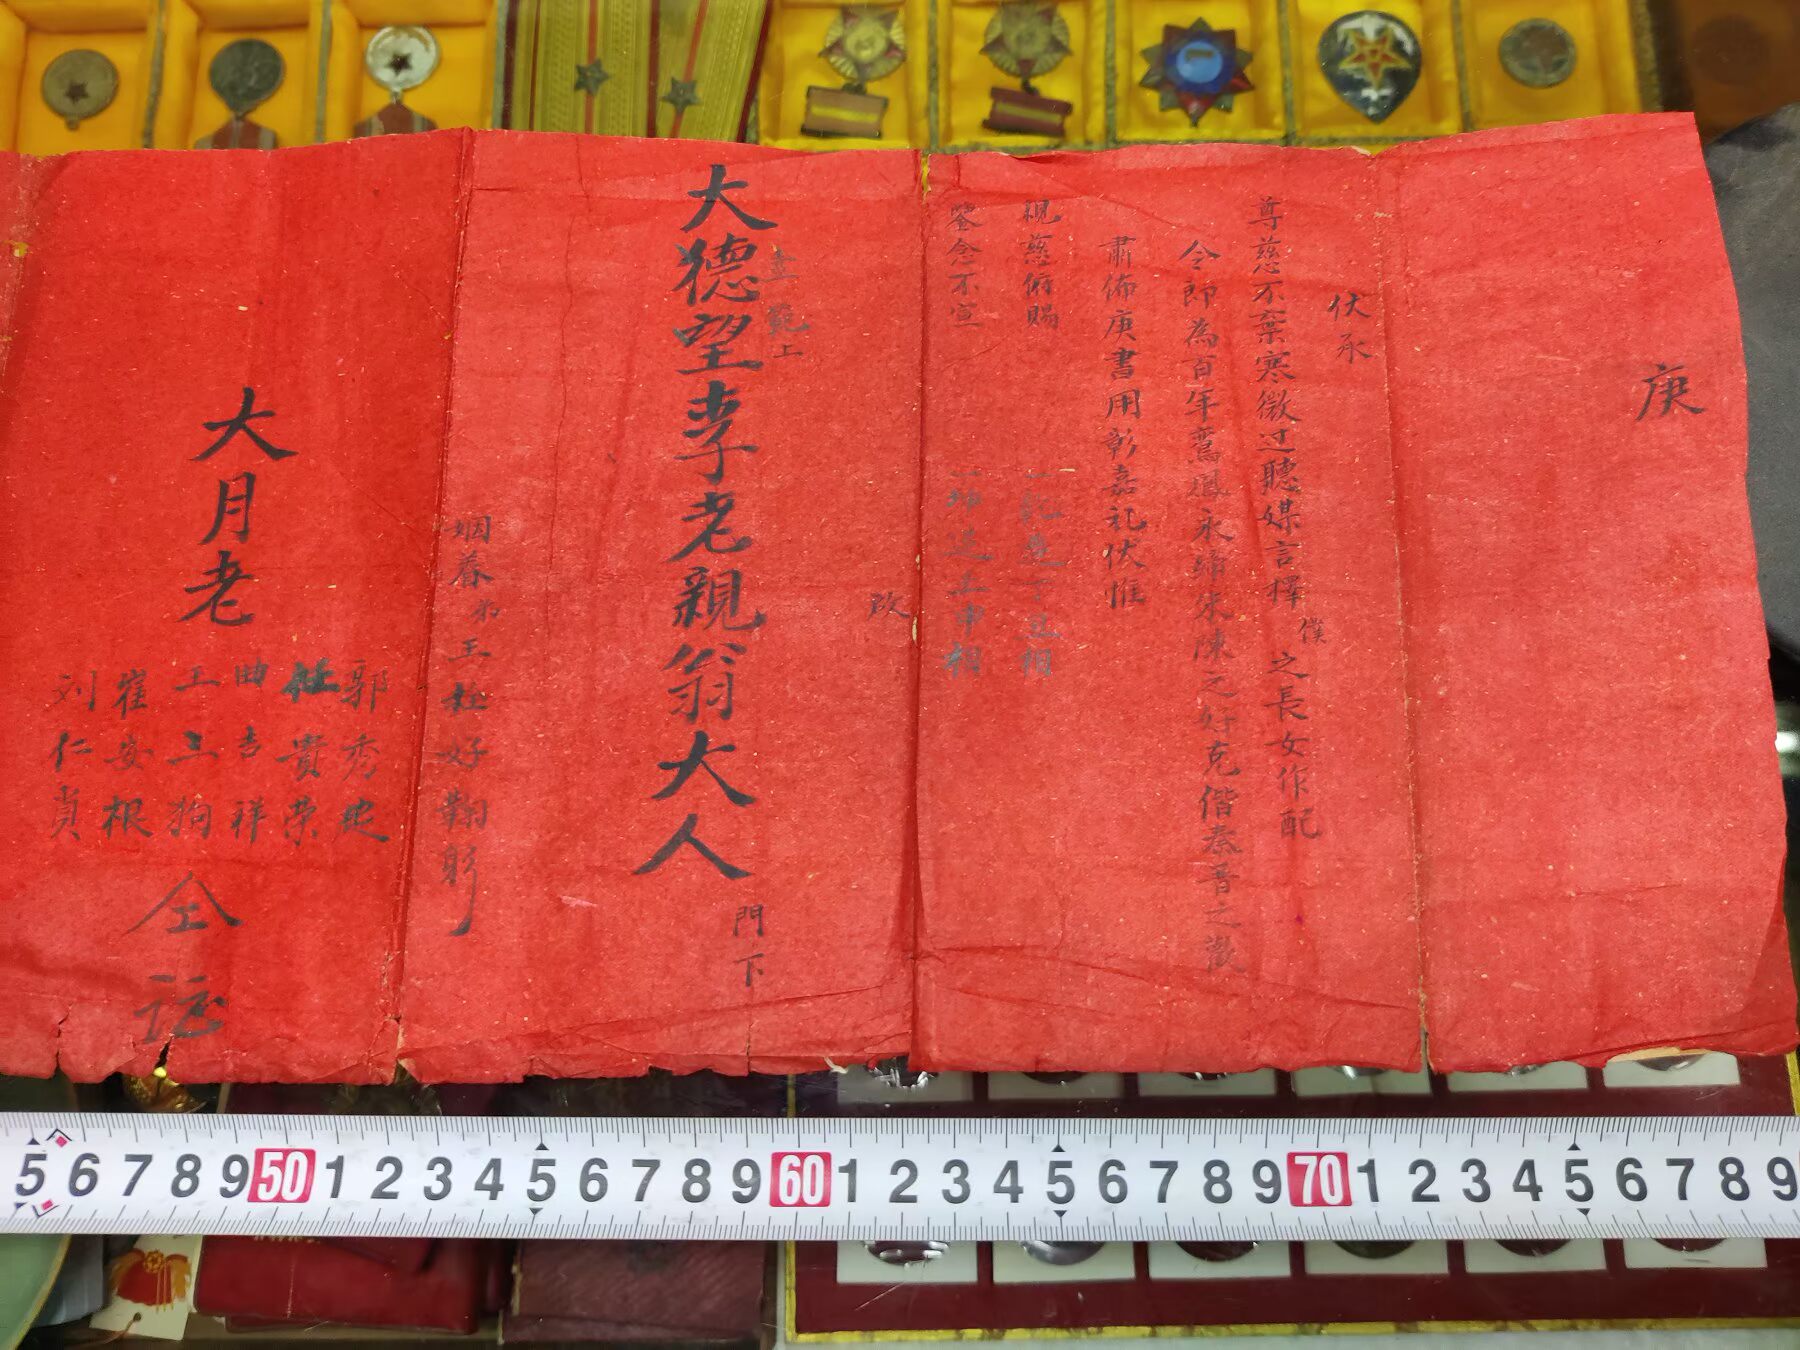 庚
伏承
尊慈不棄寒微过聽媒言擇僕之長女作配
令郎為百年鸞鳳永締朱陳之好克偕秦晋之歡
肅佈庚書用彰嘉礼伏惟
親慈俯賜 一乾造丁丑相
鑒念不宣 一坤造壬申相
改
臺範上
大德望李老親翁大人
門下
姻眷弟王 好鞠躬
大月老
郭秀
任貴荣
曲吉祥
王二狗
崔安根
刘仁貞
仝
5 6 7 8 9 50 1 2 3 4 5 6 7 8 9 60 1 2 3 4 5 6 7 8 9 70 1 2 3 4 5 6 7 8 9